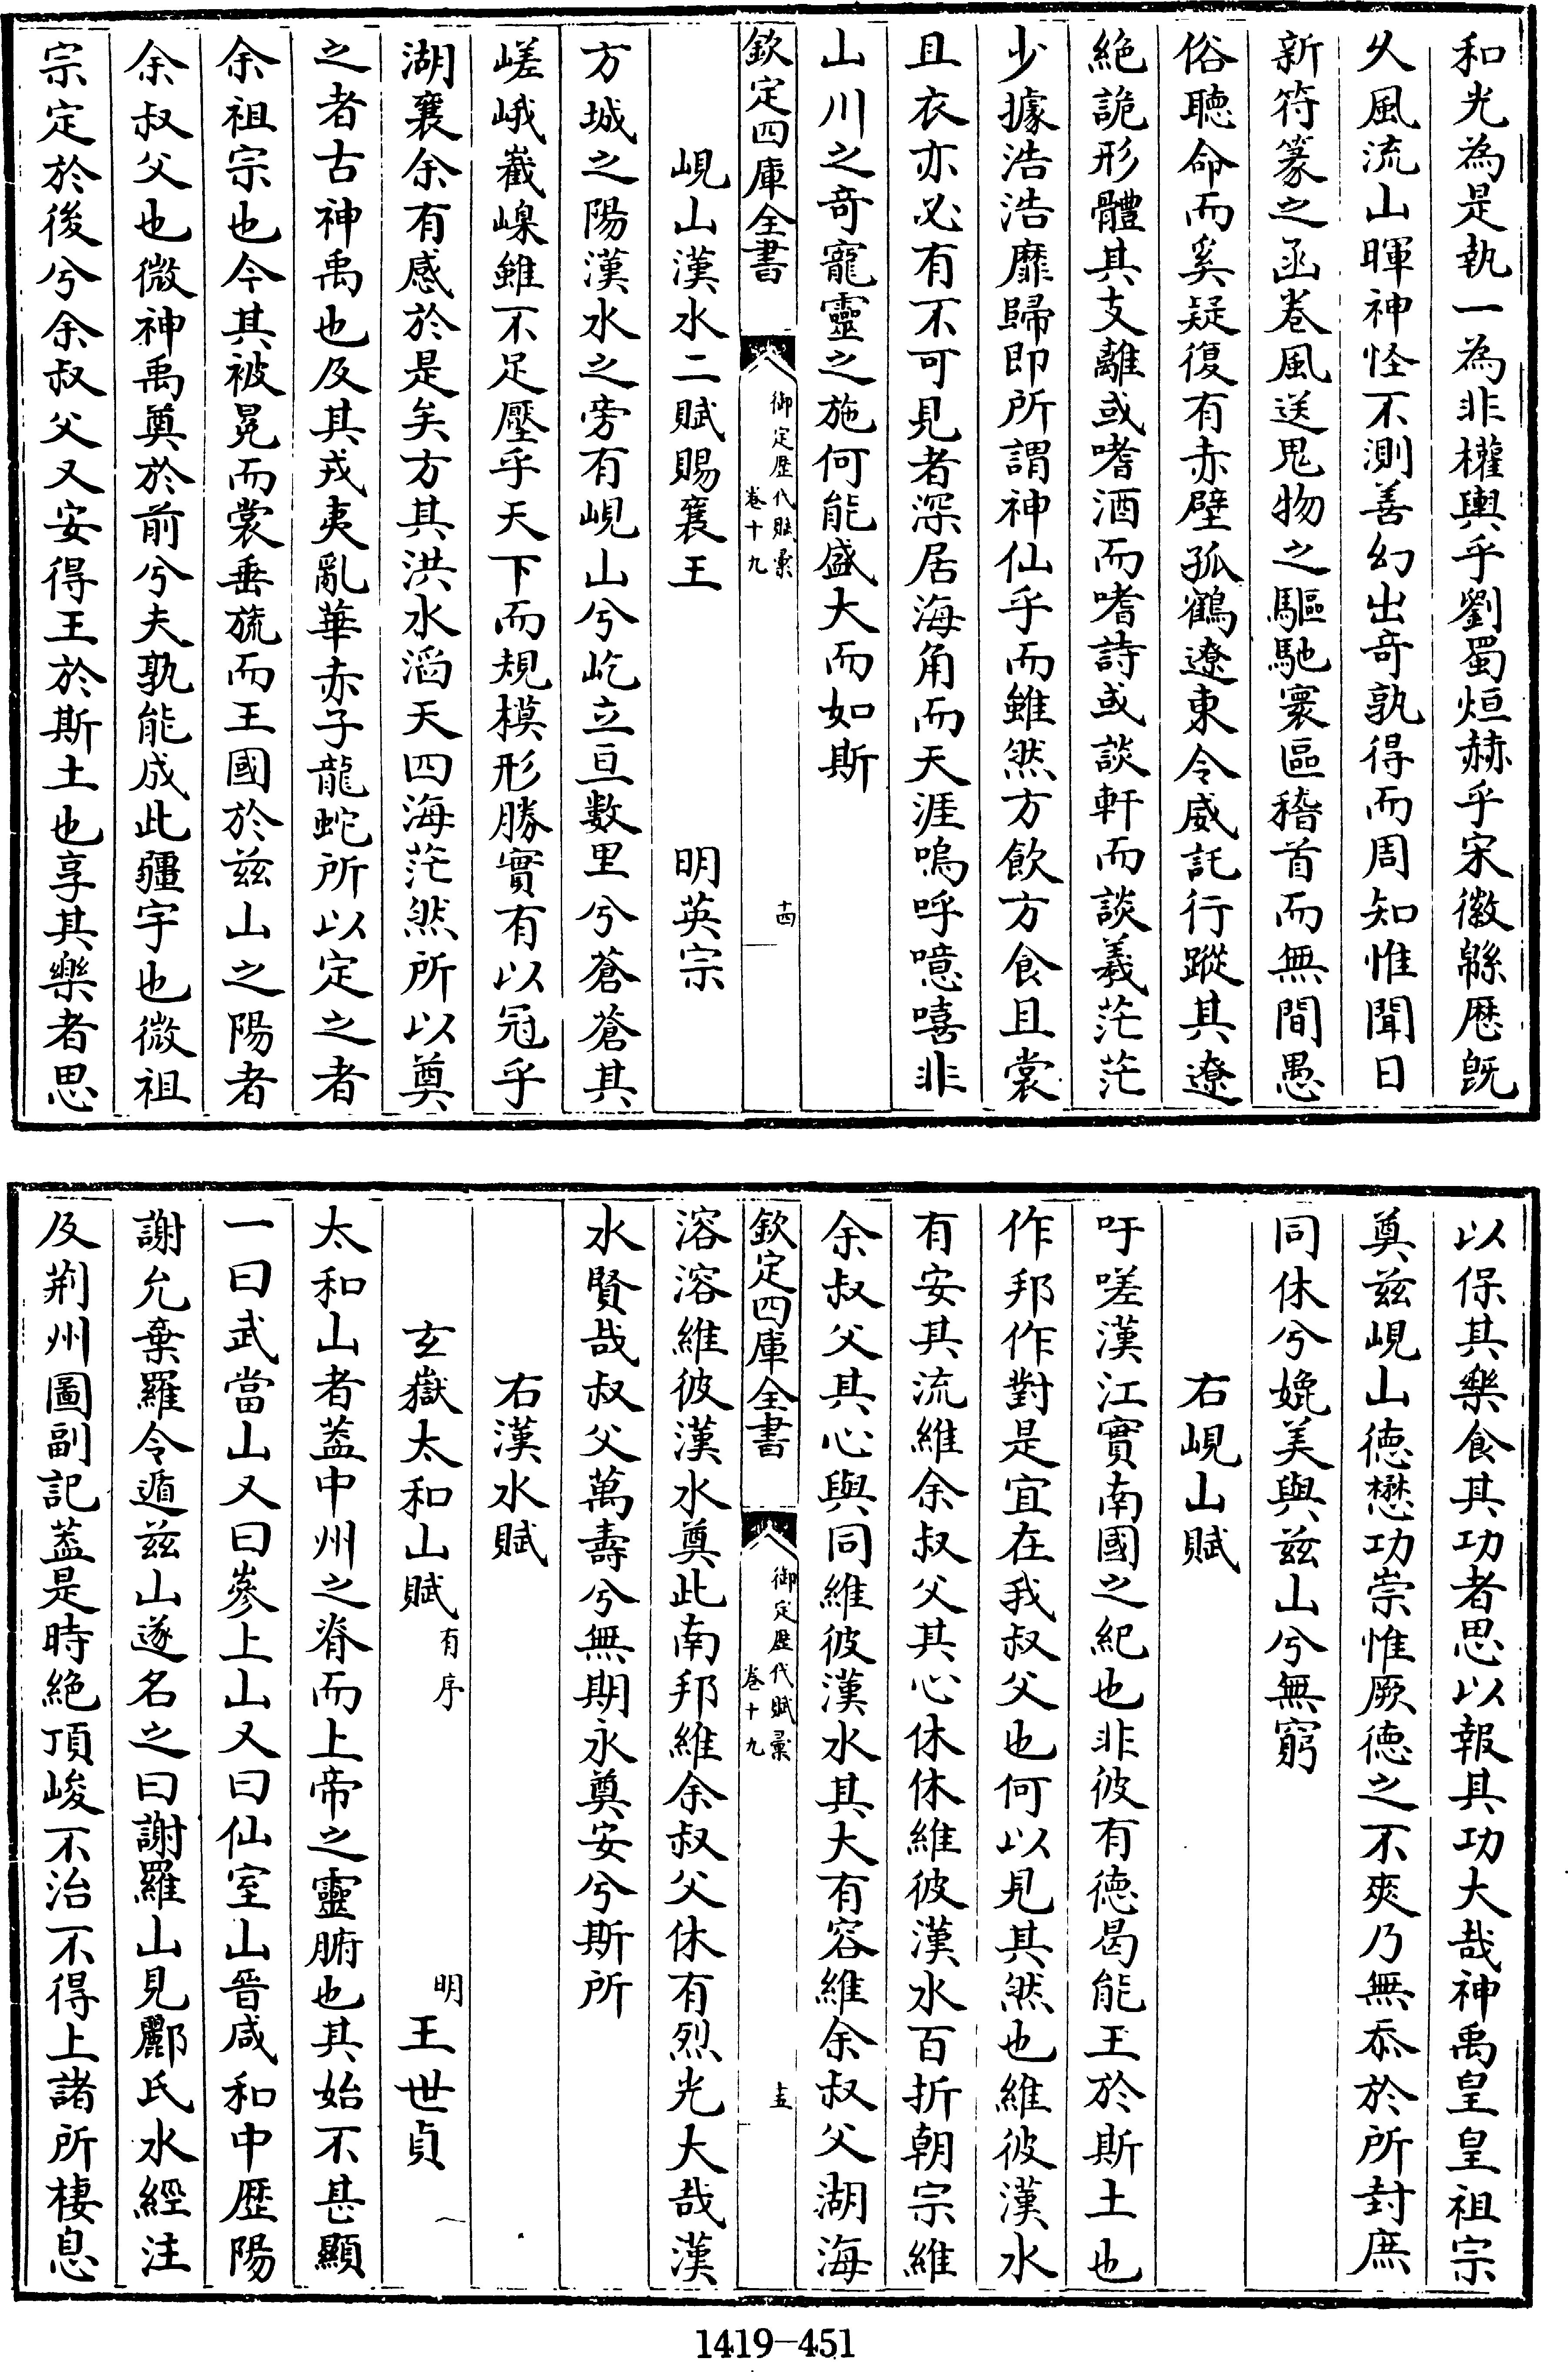 和光為是執一為非權輿乎劉蜀烜赫乎宋徽緜歴旣
乆風流山暉神怪不測善幻出竒孰得而周知惟聞日
新符篆之函巻風送鬼物之驅馳寰區稽首而無間愚
俗聽命而奚疑復有赤壁孤鶴遼東令威託行蹤其遼
絶詭形體其支離或嗜酒而嗜詩或談軒而談羲茫茫
少據浩浩靡歸即所謂神仙乎而雖然方飲方食且裳
且衣亦必有不可見者深居海角而天涯嗚呼噫嘻非
山川之竒寵靈之施何能盛大而如斯
欽定四庫全書
御定歴代賦彙
卷十九
十四
峴山漢水二賦賜襄王 明英宗
方城之陽漢水之旁有峴山兮屹立亘數里兮蒼蒼其
嵯峨巀嵲雖不足壓乎天下而規模形勝實有以冠乎
湖襄余有感於是矣方其洪水滔天四海茫然所以奠
之者古神禹也及其戎夷亂華赤子龍蛇所以定之者
余祖宗也今其被冕而裳垂旒而王國於兹山之陽者
余叔父也微神禹奠於前兮夫孰能成此疆宇也微祖
宗定於後兮余叔父又安得王於斯土也享其樂者思
以保其樂食其功者思以報其功大哉神禹皇皇祖宗
奠兹峴山徳懋功崇惟厥徳之不爽乃無忝於所封庶
同休兮媲美與兹山兮無窮
右峴山賦
吁嗟漢江實南國之紀也非彼有徳曷能王於斯土也
作邦作對是宜在我叔父也何以見其然也維彼漢水
有安其流維余叔父其心休休維彼漢水百折朝宗維
余叔父其心與同維彼漢水其大有容維余叔父湖海
欽定四庫全書
御定歴代賦彙
卷十九
十五
溶溶維彼漢水奠此南邦維余叔父休有烈光大哉漢
水賢哉叔父萬壽兮無期永奠安兮斯所
右漢水賦
玄嶽太和山賦有序 明王世貞
太和山者葢中州之脊而上帝之靈腑也其始不甚顯
一曰武當山又曰嵾上山又曰仙室山晉咸和中歴陽
謝允棄羅令遁兹山遂名之曰謝羅山見酈氏水經注
及荆州圖副記葢是時絶頂峻不治不得上諸所棲息
1419—451